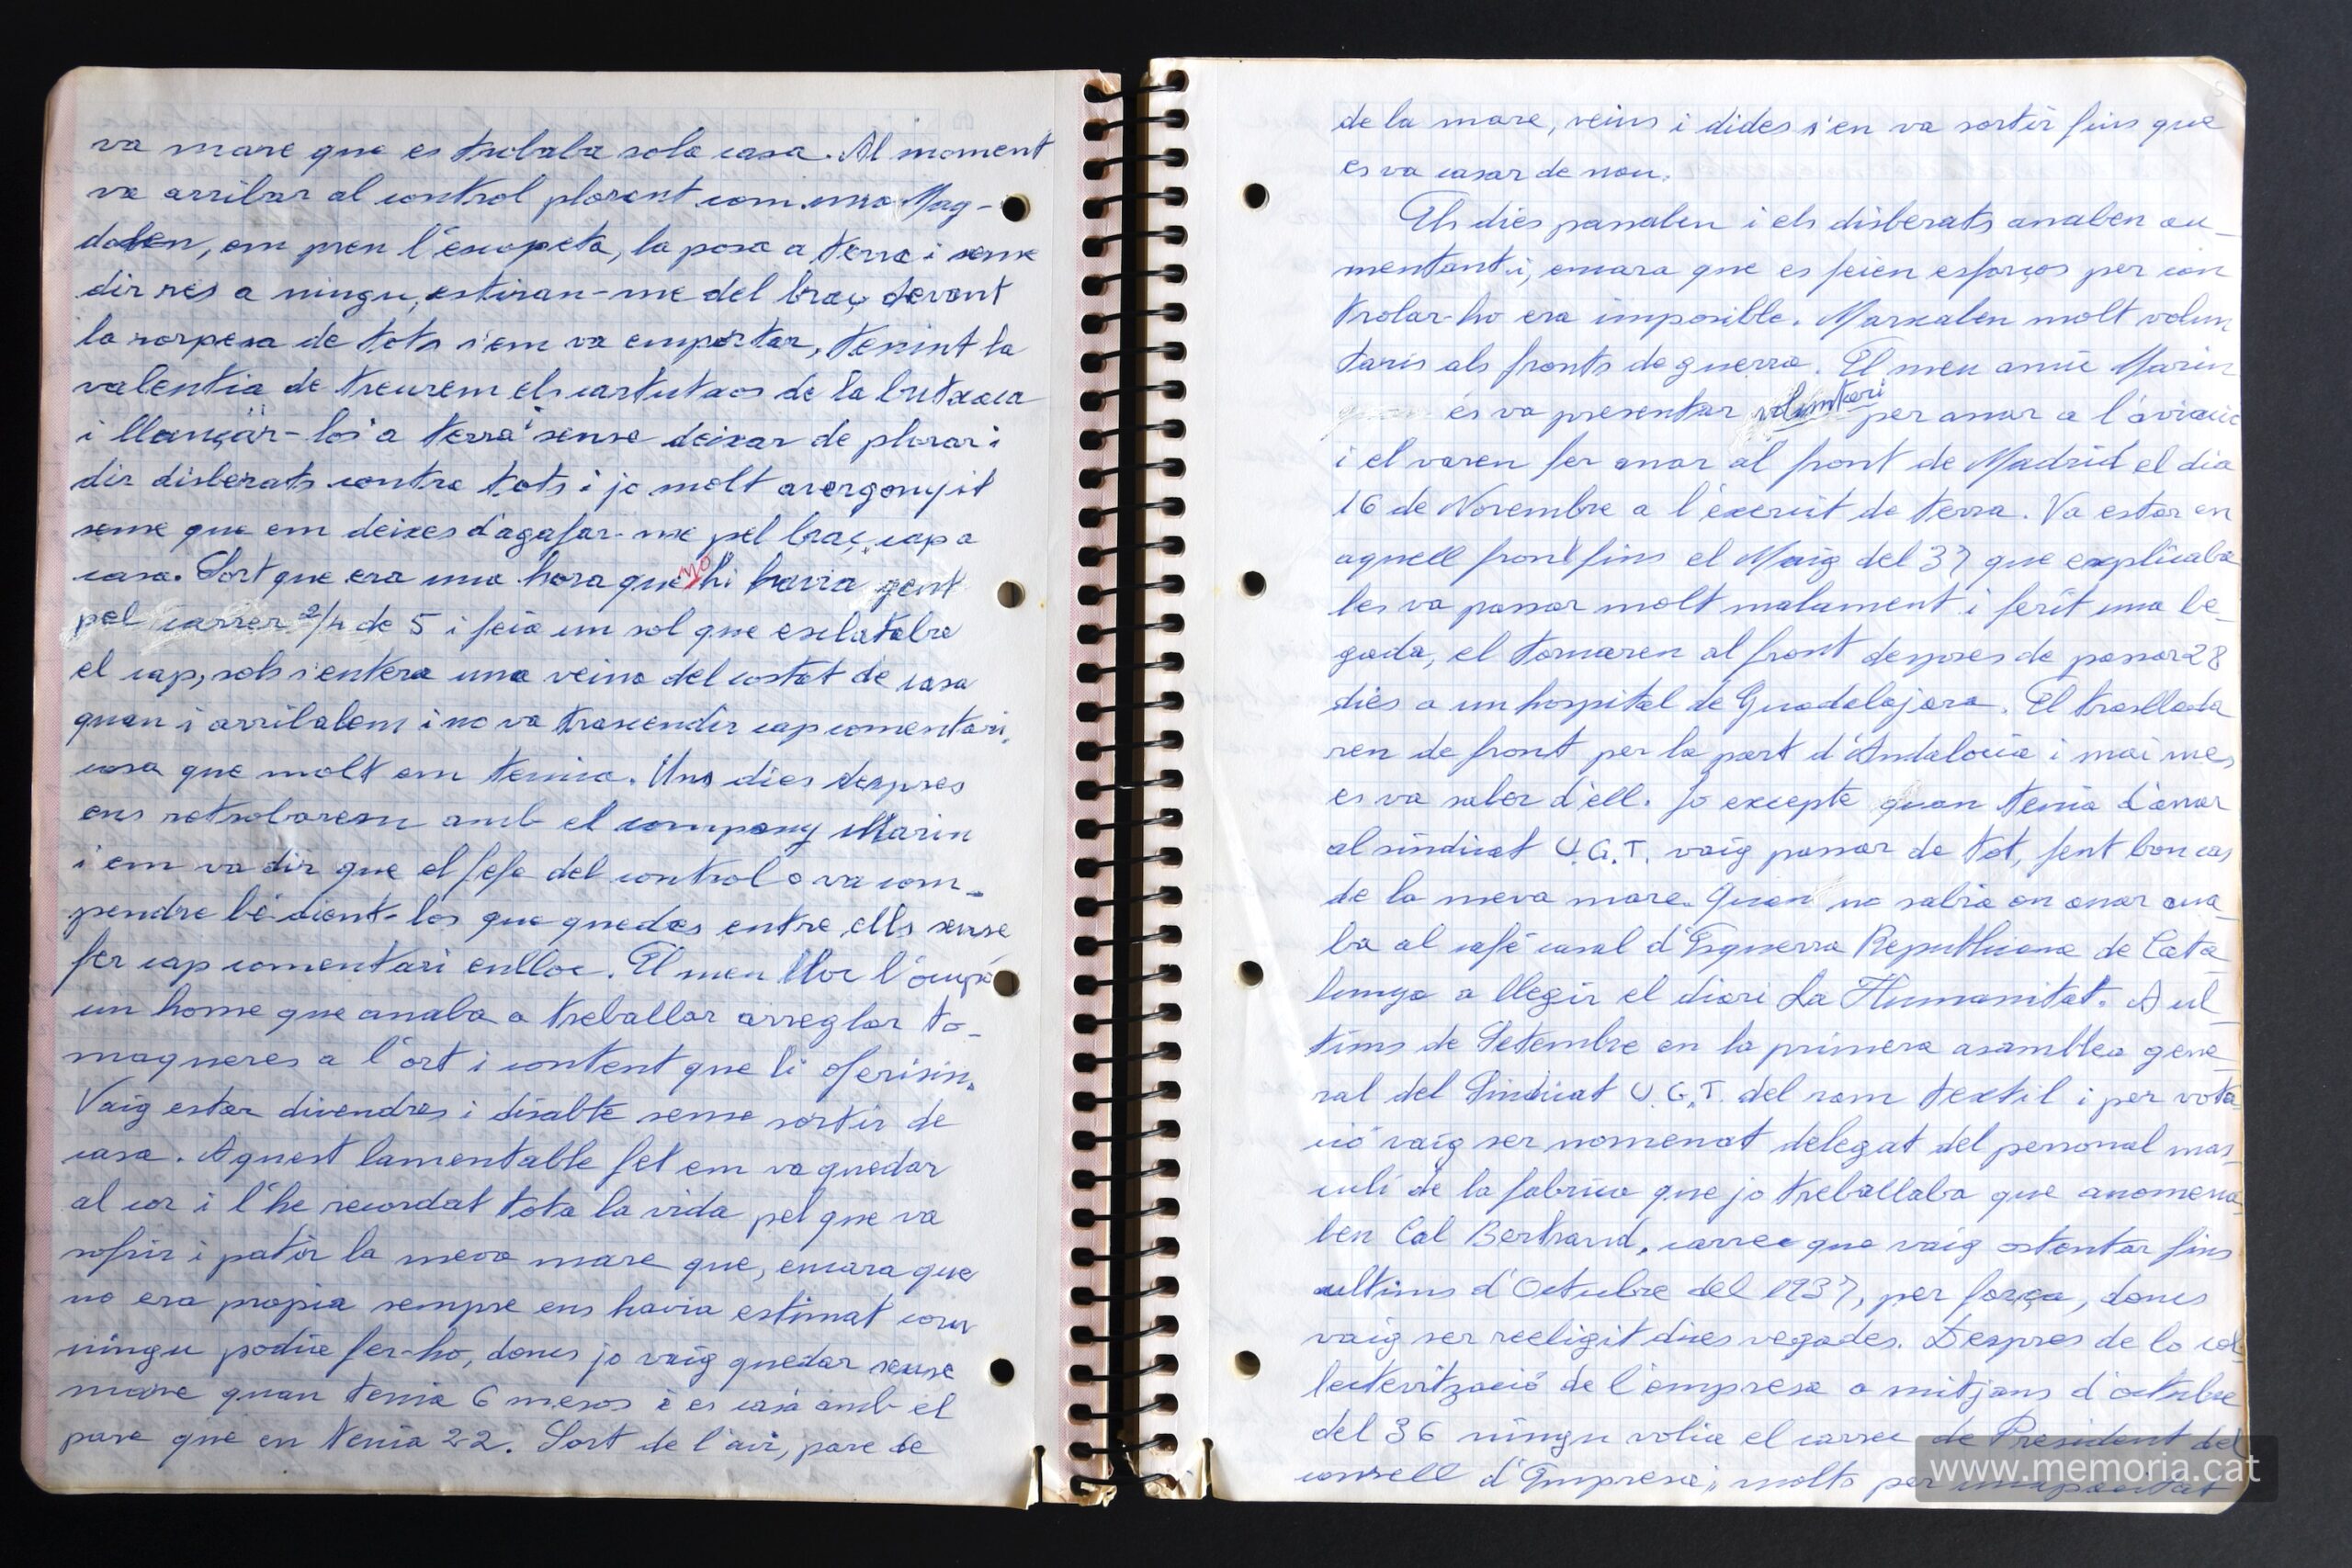 va mare que es trobaba sola casa. Al moment
va arribar al control plorant com una Mag-
dalen, em pren l'escopeta, la posa a terra i sense
dir res a ningu, estiran-me del braç devant
la sorpesa de tots s'em va emportar, tenint la
valentia de treurem els cartutxos de la butxaca
i llançar-los a terra sense deixar de plorar i
dir disberats contra tots i jo molt avergonyit
sense que em deixes d'agafar-me pel braç, cap a
casa. Sort que era una hora que no hi havia gent
pel carrer 2/4 de 5 i feia un sol que esclatabre
el cap, sols s'entera una veina del costat de casa
quan i arribabem i no va trascendir cap comentari,
cosa que molt em temia. Uns dies despres
ens retrobarem amb el company Marin
i em va dir que el fefe del control o va com-
pendre bé dient-los que quedes entre ells sense
fer cap comentari enlloc. El meu lloc l'ocupà
un home que anaba a treballar arreglar to-
maqueres a l'ort i content que li oferisin.
Vaig estar divendres i disabte sense sortir de
casa. Aquest lamentable fet em va quedar
al cor i l'he recordat tota la vida pel que va
sofrir i patir la meva mare que, encara que
no era propia sempre ens havia estimat com
ningu podia fer-ho, doncs jo vaig quedar sense
mare quan tenia 6 mesos i es casà amb el
pare que en tenia 22. Sort de l'avi, pare de
de la mare, veins i dides s'en va sortir fins que
es va casar de nou.
Els dies passaben i els disberats anaben au-
mentant i, encara que es feien esforços per con
trolar-ho era imposible. Marxaben molt volun
taris als fronts de guerra. El meu amic Marin
es va presentar voluntari per anar a l'aviacio
i el varen fer anar al front de Madrid el dia
16 de Novembre a l'exercit de terra. Va estar en
aquell front fins el Maig del 37 que explicaba
les va passar molt malament i ferit una be-
gada, el tornaren al front despres de passar 28
dies a un hospital de Guadalajara. El traslladа
ren de front per la part d'Andalocia i mai mes
es va saber d'ell. Jo excepte quan tenia d'anar
al sindicat U.G.T. vaig passar de tot, fent bon cas
de la meva mare. Quan no sabia on anar ana-
ba al café casal d'Esquerra Republicana de Cata
lunya a llegir el diari La Humanitat. A ul-
tims de Setembre en la primera asamblea gene
ral del Sindicat U.G.T. del ram textil i per vota-
ció vaig ser nomenat delegat del personal mas-
culí de la fabrica que jo treballaba que anomena-
ben Cal Bertrand, carrec que vaig ostentar fins
ultims d'Octubre del 1937, per força, doncs
vaig ser reeligit dues vegades. Despres de la col-
lectevització de l'empresa a mitjans d'octubre
del 36 ningu volia el carrec de President del
consell d'Empresa, molts per incapacitat
www.memoria.cat